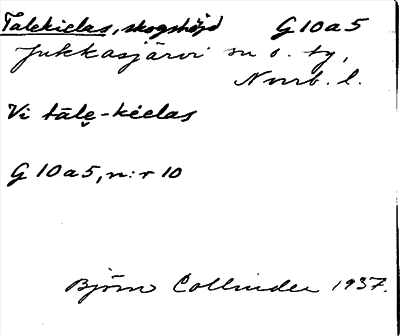 Talekielas, skogshöjd G 10 a 5
Jukkasjärvi sn o. tg,
Norrb. l.
Vi tālẹ-kielas
G 10 a 5, n:r 10
Björn Collinder 1937.